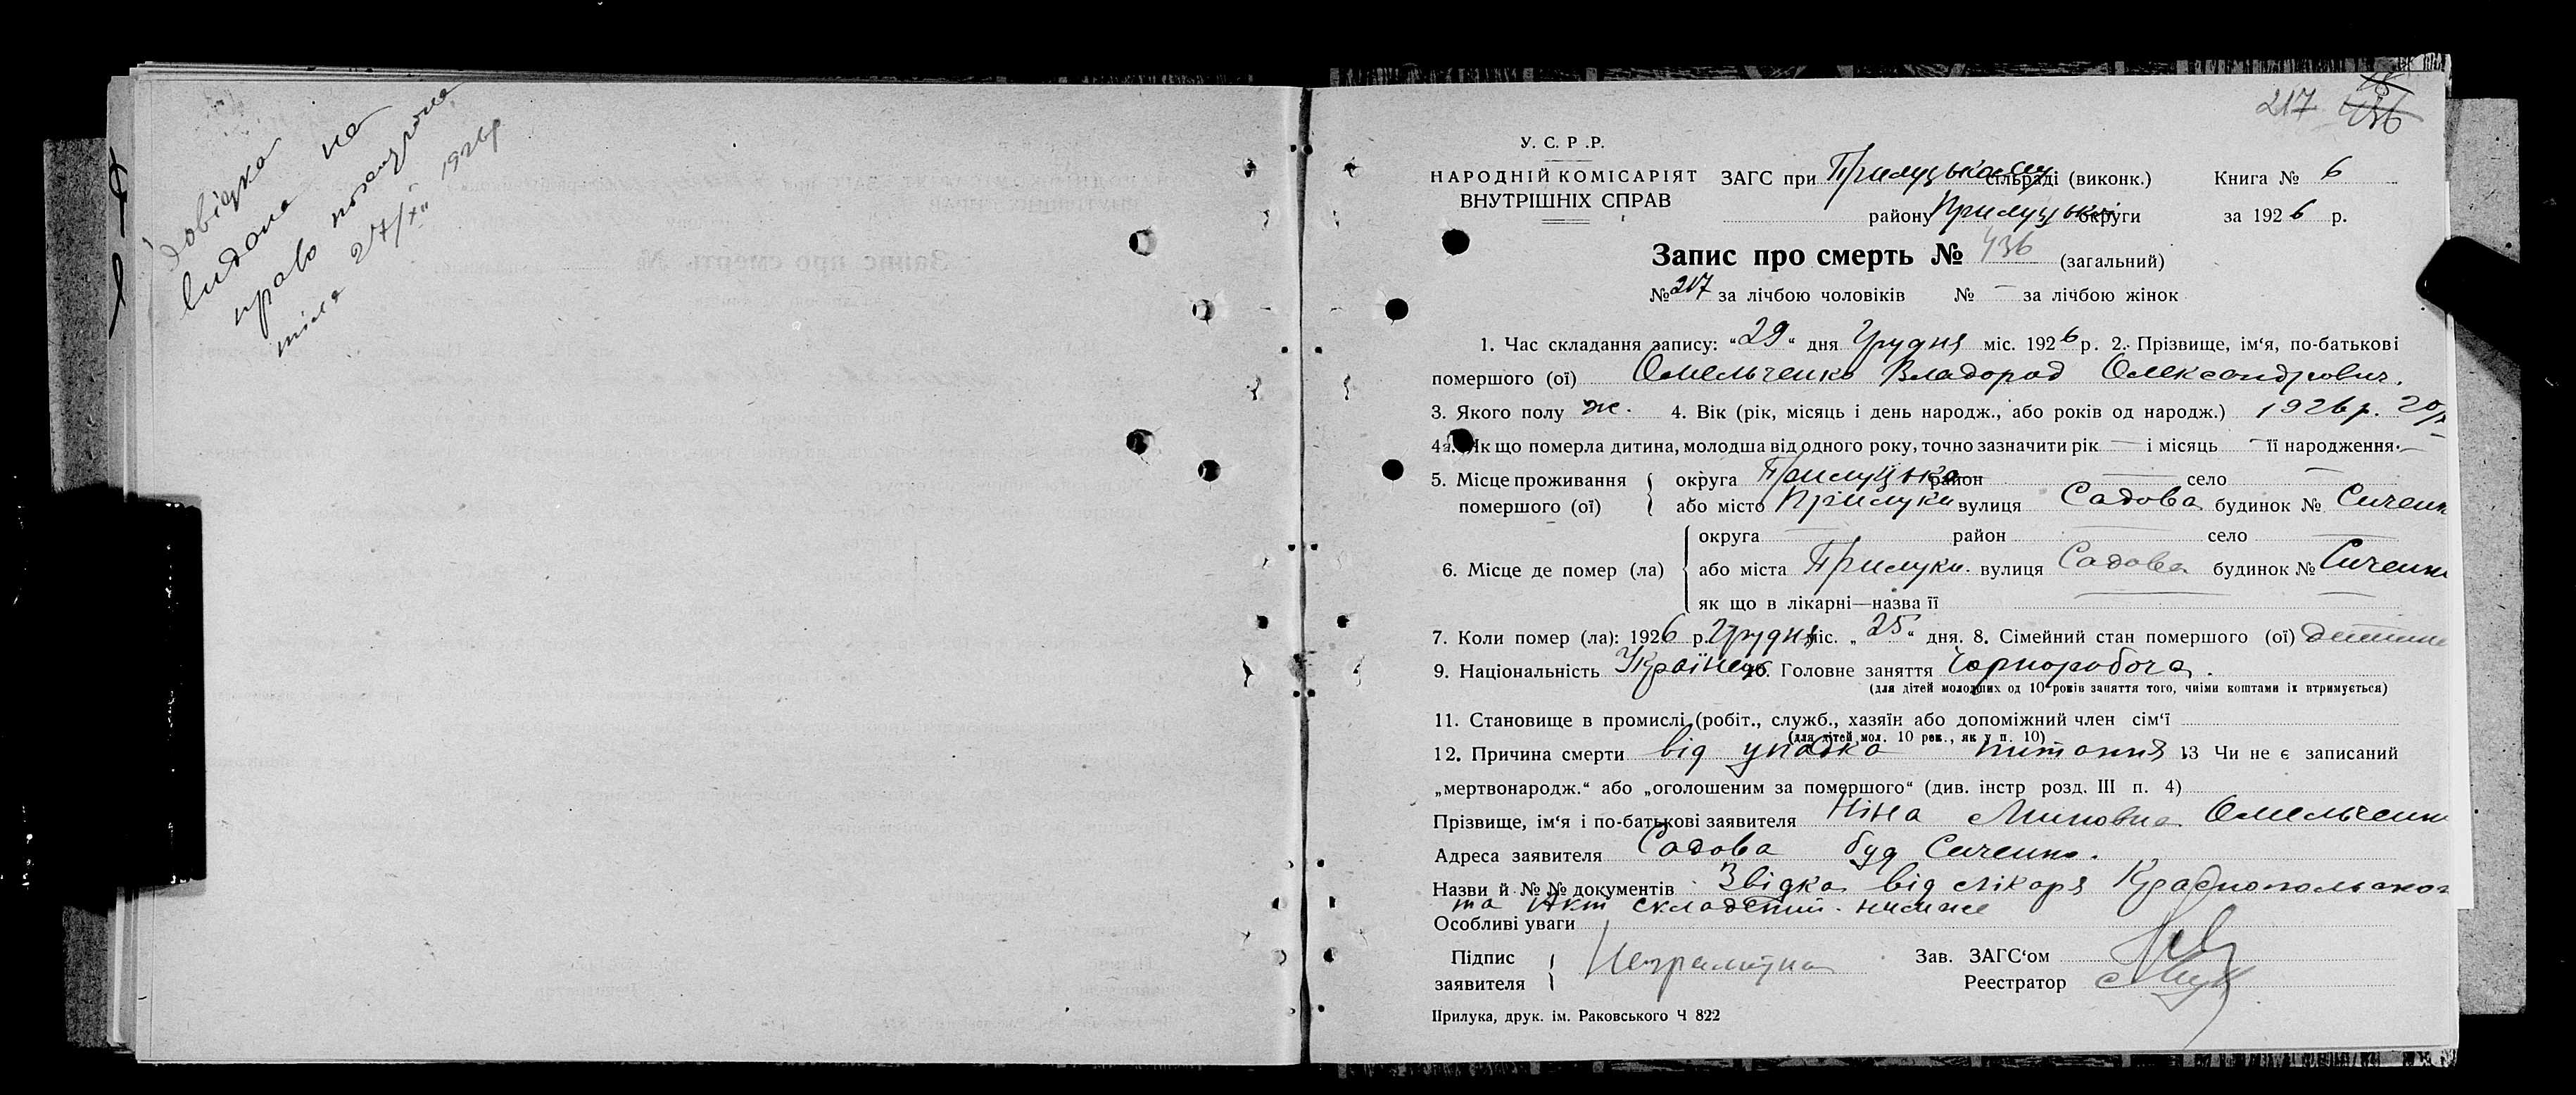 Довідка
видана на
право похорона
тіла 27/XII 1926 р
217 436
У. С. Р. Р.
НАРОДНІЙ КОМІСАРІЯТ
ВНУТРІШНІХ СПРАВ
ЗАГС при Прилуцькому сільраді (виконк.) Книга № 6
району Прилуцької округи за 1926 р.
Запис про смерть № 436 (загальний)
№ 217 за лічбою чоловіків № — за лічбою жінок
1. Час складання запису: "29" дня Грудня міс. 1926 р. 2. Прізвище, ім'я, по-батькові
помершого (ої) Омельченко Владорад Олександрович.
3. Якого полу ж. 4. Вік (рік, місяць і день народж., або років од народж.) 1926 р. 20/
4а. Як що померла дитина, молодша від одного року, точно зазначити рік — і місяць — її народження. —
5. Місце проживання округа Прилуцька район — село —
помершого (ої) або місто Прилуки вулиця Садова будинок № Сиченк
округа — район — село —
6. Місце де помер (ла) або міста Прилуки. вулиця Садова будинок № Сиченк
як що в лікарні—назва її — —
7. Коли помер (ла): 1926 р. Грудня міс. „25" дня. 8. Сімейний стан помершого (ої) дитина
9. Національність Українець 10. Головне заняття Чорноробоча.
(для дітей молодших од 10 років заняття того, чиїми коштами їх втримується)
11. Становище в промислі (робіт., служб., хазяїн або допоміжний член сім'ї
(для дітей мол. 10 рок., як у п. 10)
12. Причина смерти від упадка питания 13 Чи не є записаний
„мертвонародж." або „оголошеним за помершого" (див. інстр розд. III п. 4)
Прізвище, ім'я і по-батькові заявителя Ніна Миновна Омельченк
Адреса заявителя Садова буд Сиченко.
Назви й № № документів Звідка від лікаря Краснопольског
та Акт складений
Особливі уваги
Підпис
заявителя Неграмотна
Зав. ЗАГС'ом
Реестратор
Прилука, друк. ім. Раковського Ч 822